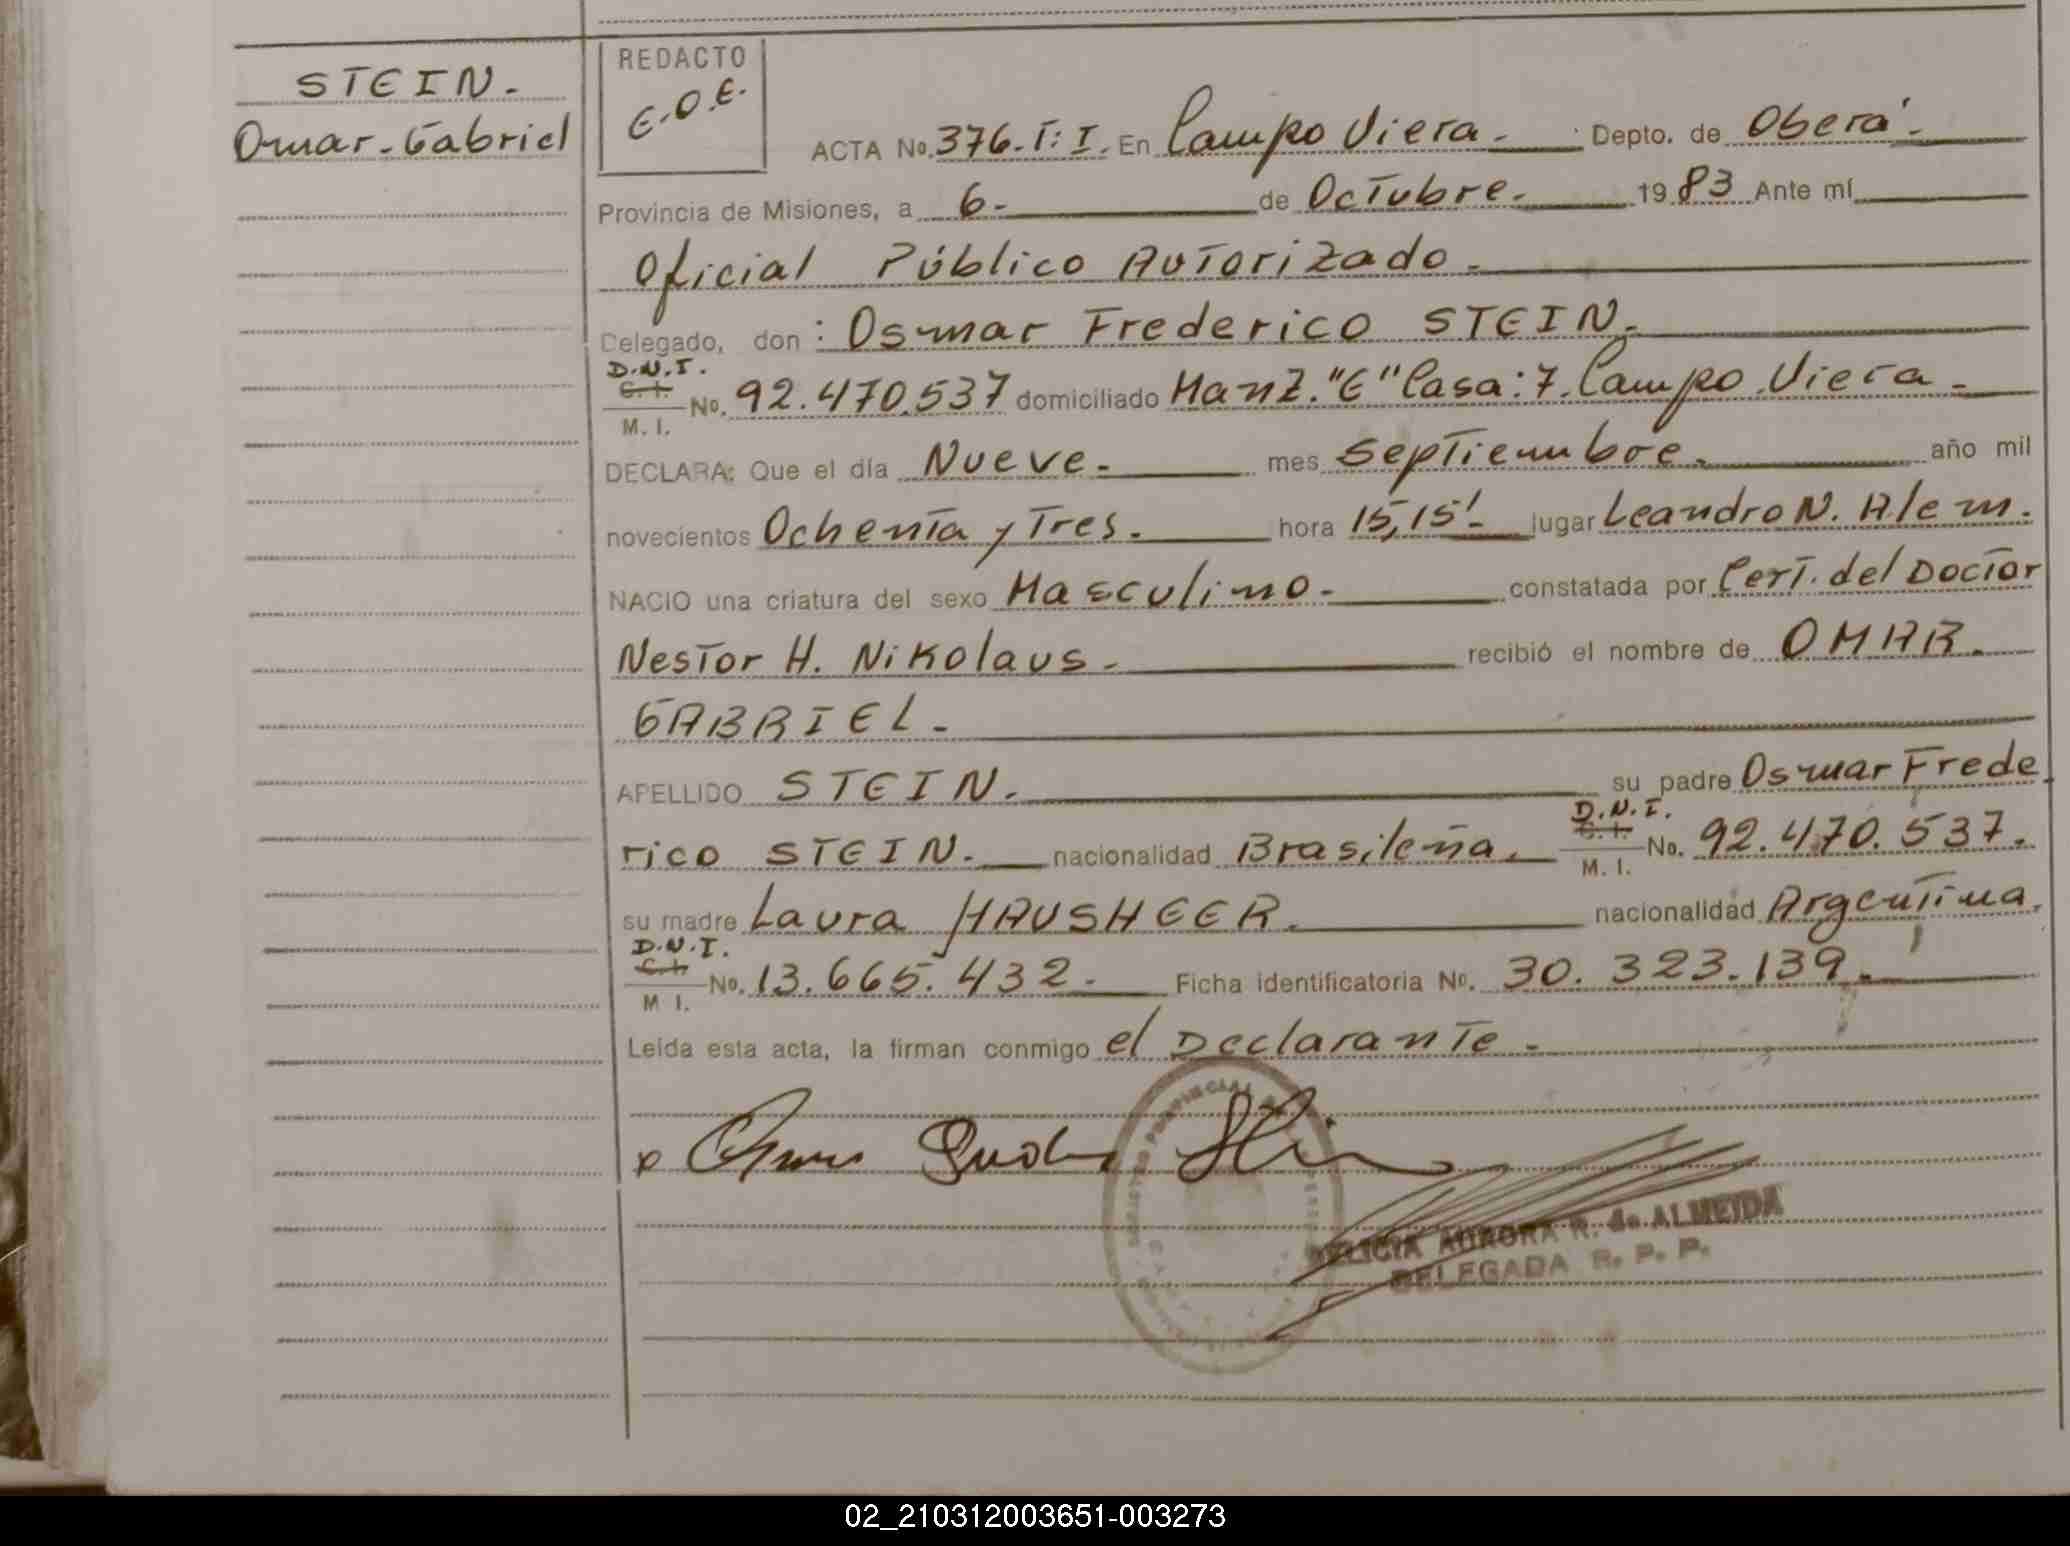 STEIN.
Omar-Gabriel
REDACTO
E.O.E.
ACTA No. 376.T: I. En Campo Viera. Depto. de Oberá.
Provincia de Misiones, a 6- de Octubre. 1983 Ante mí
Oficial Público Autorizado.
Delegado, don: Osmar Frederico STEIN.
D.N.I.
C.I.
M. I.
No. 92.470.537 domiciliado Manz. "E" Casa: 7. Campo Viera.
DECLARA: Que el día Nueve. mes Septiembre. año mil
novecientos Ochenta y Tres. hora 15,15'. lugar Leandro N. Alem.
NACIO una criatura del sexo Masculino. constatada por Cert. del Doctor
Nestor H. Nikolaus. recibió el nombre de OMAR.
GABRIEL.
APELLIDO STEIN. su padre Osmar Frede
rico STEIN. nacionalidad Brasileña. D.N.I. C.I. M. I. No. 92.470.537.
su madre Laura HAUSHEER. nacionalidad Argentina.
D.N.I.
C.I.
M I.
No. 13.665.432. Ficha identificatoria No. 30.323.139.
Leída esta acta, la firman conmigo el Declarante.
FELICIA AURORA R. de ALMEIDA
DELEGADA R. P. P.
02_210312003651-003273